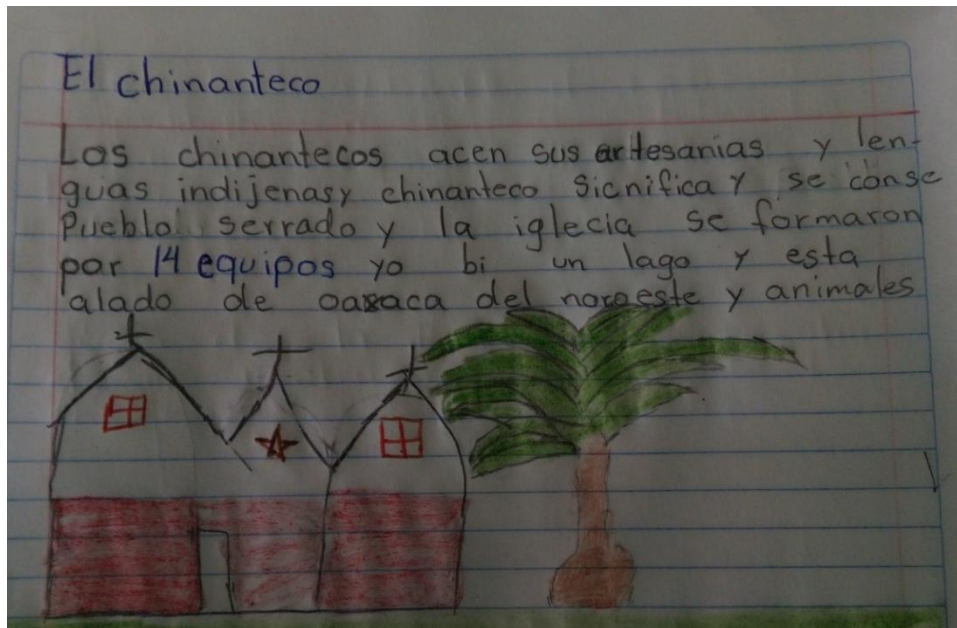 El chinanteco
Los chinantecos acen sus artesanias y len-
guas indijenas y chinanteco sicnifica y se conse
Pueblo serrado y la iglecia se formaron
por 14 equipos yo bi un lago y esta
alado de oaxaca del noroeste y animales